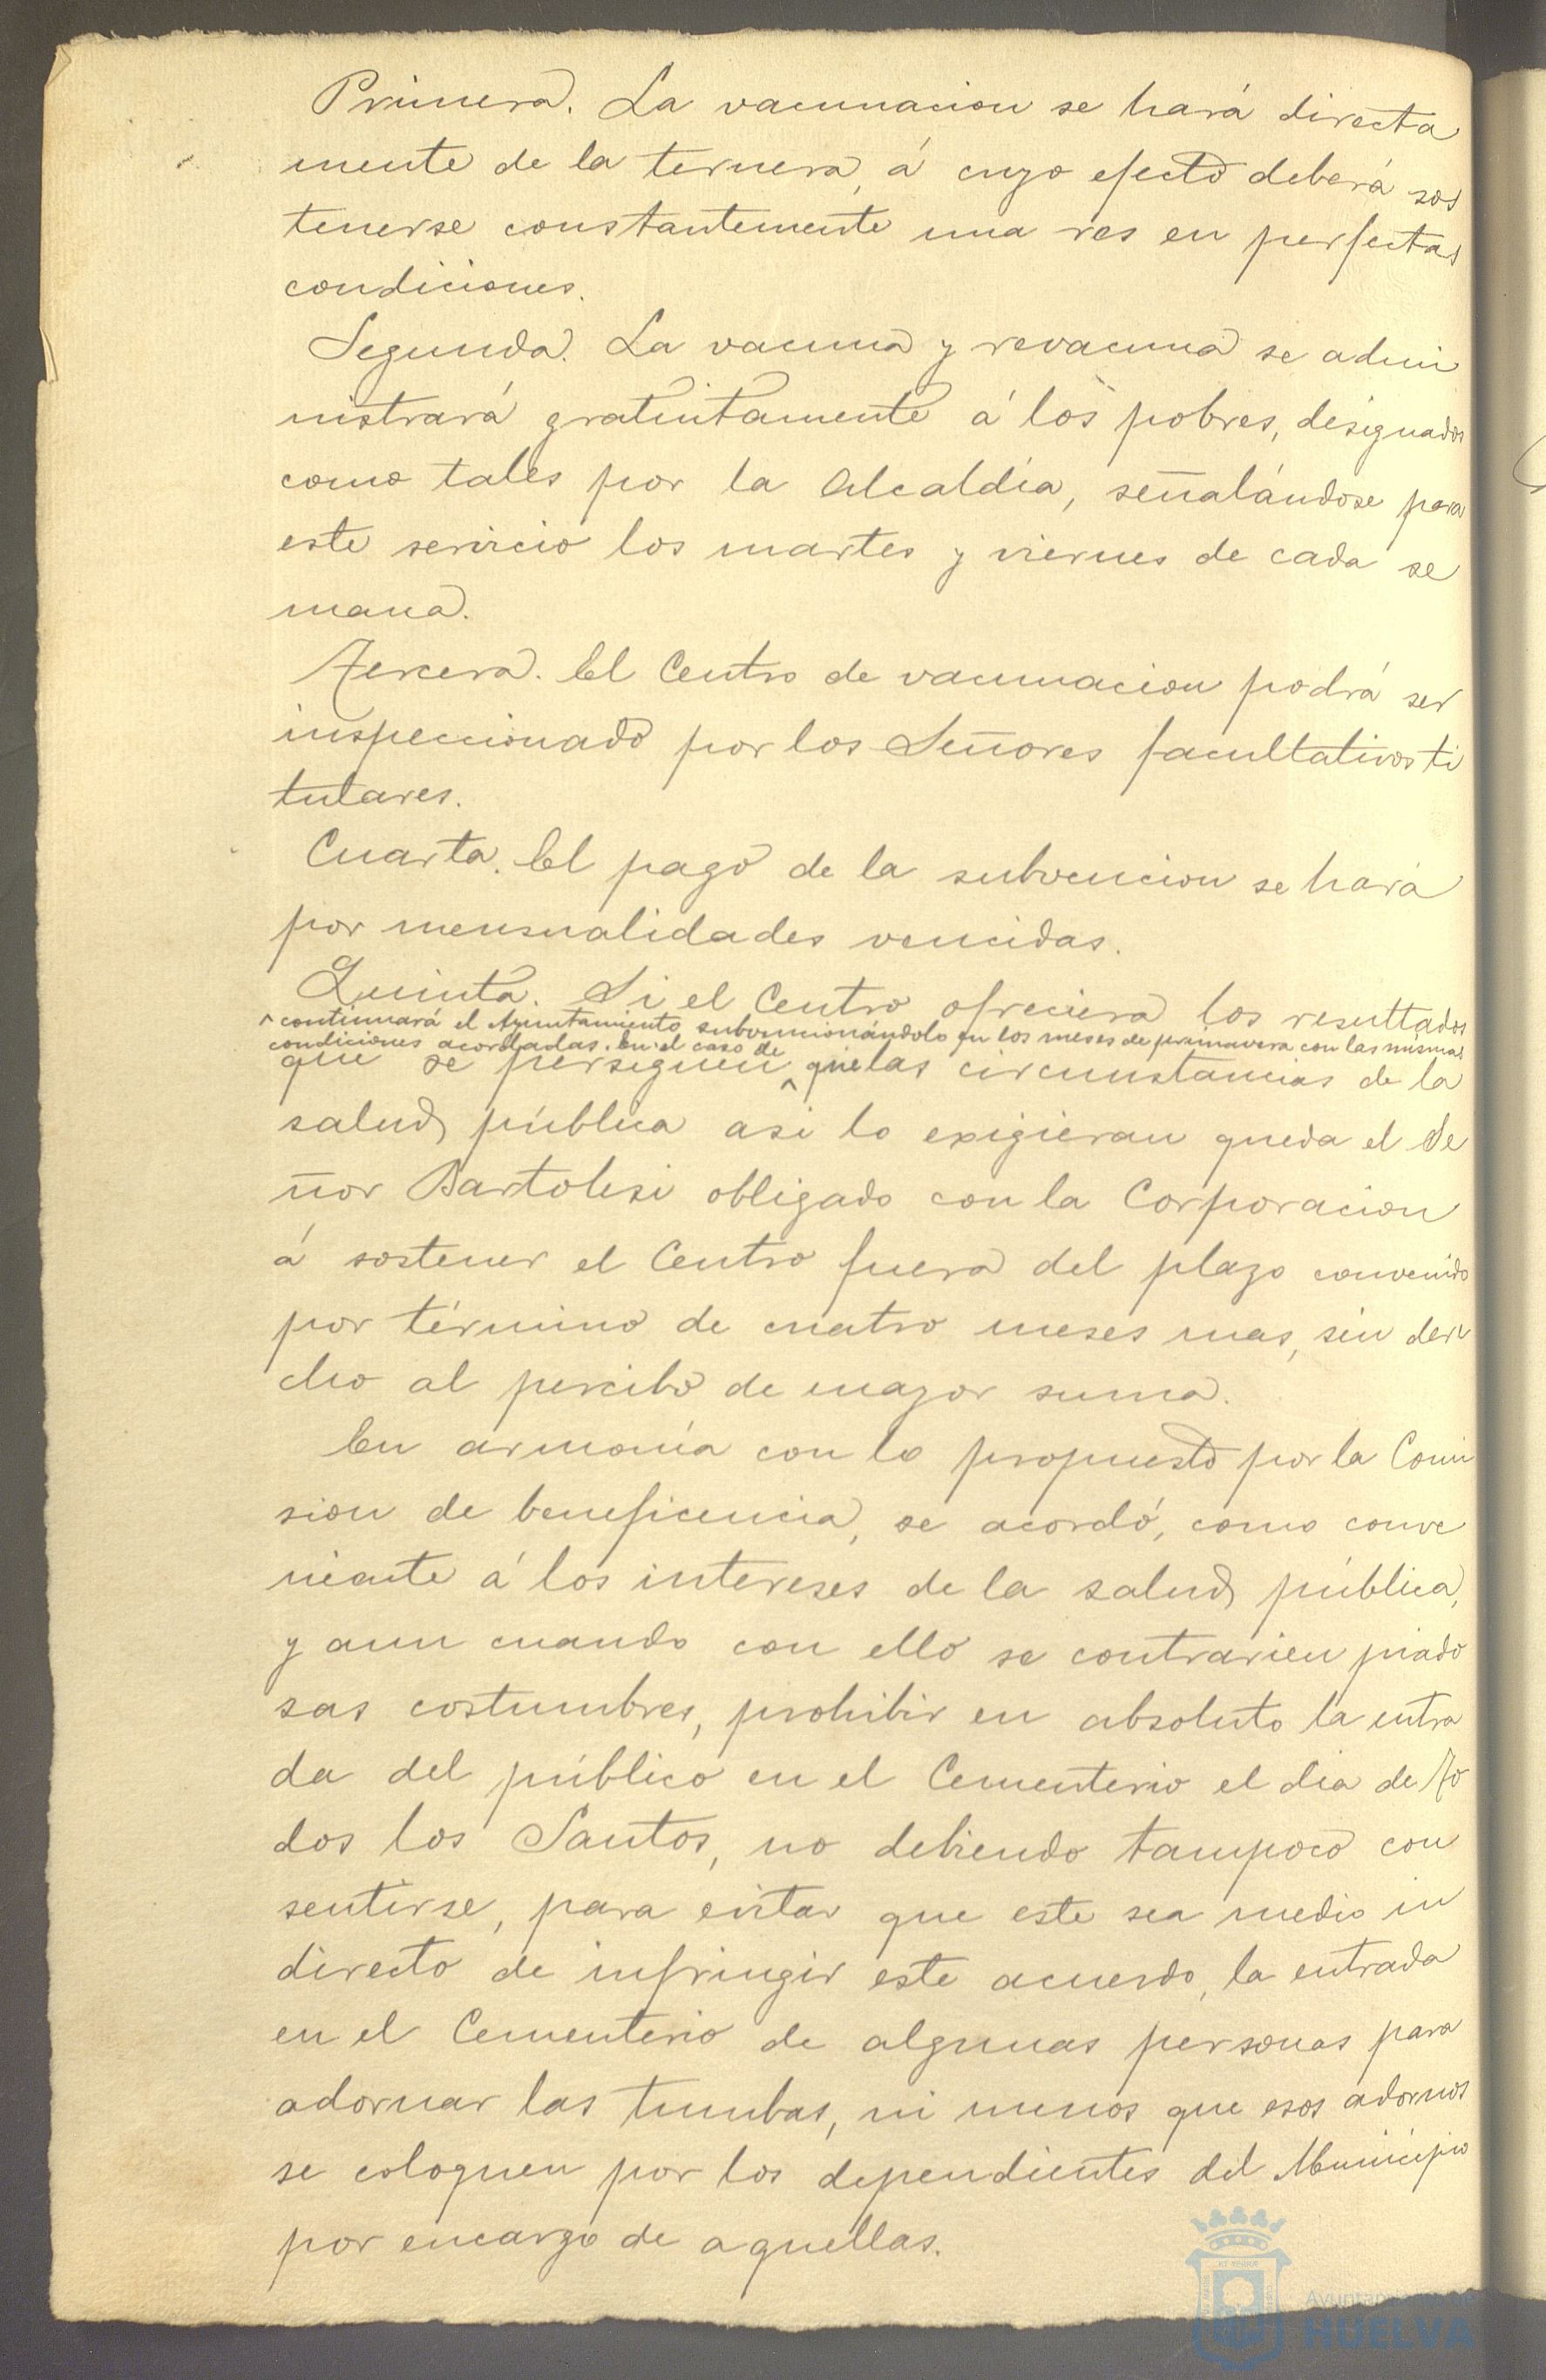 Primera. La vacunacion se hará directa
mente de la ternera, á cuyo efecto deberá sos
tenerse constantemente una res en perfectas
condiciones.
Segunda. La vacuna y revacuna se admi
nistrará gratuitamente á los pobres, designados
como tales por la Alcaldía, señalándose para
este servicio los martes y viernes de cada se
mana.
Tercera. El Centro de vacunacion podrá ser
inspeccionado por los Señores facultativos ti
tulares.
Cuarta. El pago de la subvencion se hará
por mensualidades vencidas.
Quinta. Si el Centro ofreciera los resultados
^ continuará el Ayuntamiento subvencionándolo en los meses de primavera con las mismas
condiciones acordadas. En el caso de
que se persiguen ^ que las circunstancias de la
salud pública asi lo exigieran queda el Se
ñor Bartolesi obligado con la Corporacion
á sostener el Centro fuera del plazo convenido
por término de cuatro meses mas, sin dere
cho al percibo de mayor suma.
En armonía con lo propuesto por la Comi
sion de beneficencia, se acordó, como conve
niente á los intereses de la salud pública,
y aun cuando con ello se contrarien piado
sas costumbres, prohibir en absoluto la entra
da del público en el Cementerio el dia de To
dos los Santos, no debiendo tampoco con
sentirse, para evitar que este sea medio in
directo de infringir este acuerdo, la entrada
en el Cementerio de algunas personas para
adornar las tumbas, ni menos que esos adornos
se coloquen por los dependientes del Municipio
por encargo de aquellas.
Ayuntamiento de
HUELVA